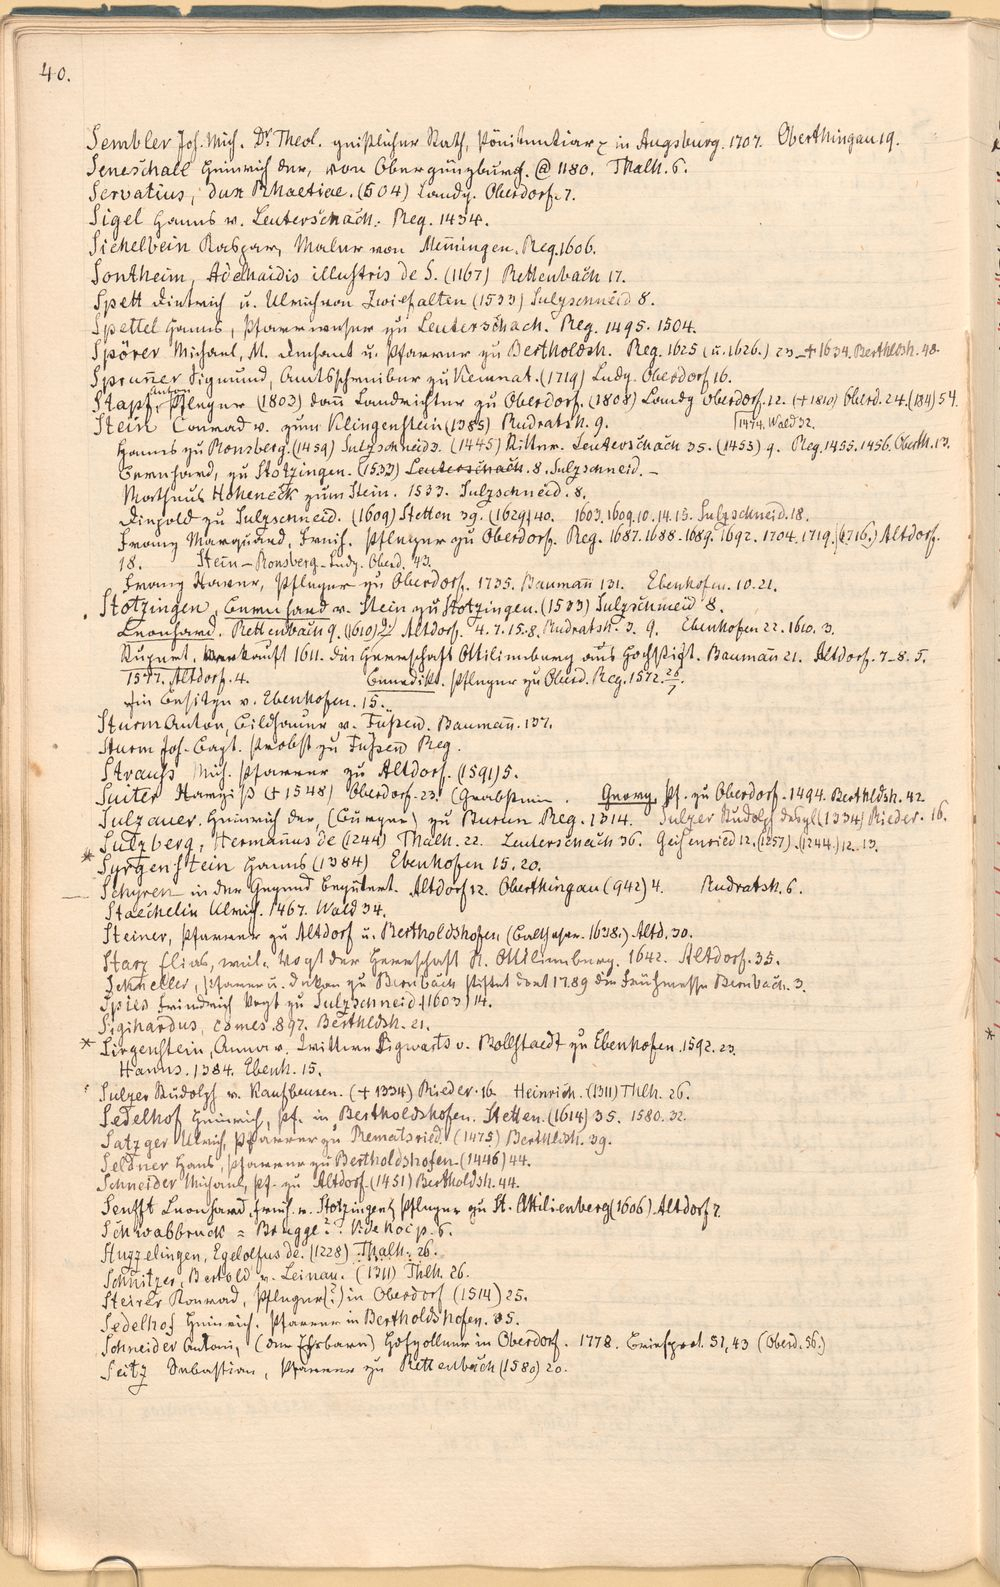 40.
Sembler Joh. Mich. Dr. Theol. geistlicher Rath, Pönitentiar in Augsburg. 1707. Oberthingau 19.
Seneschall Heinrich der, von Obergünzburg. @ 1180. Thalh. 6.
Servatius, dux Rhaetiae. (504) Landg. Oberdorf. 7.
Sigel Hanns v. Leuterschach. Reg. 1434.
Sichelbein Kaspar, Maler von Memingen. Reg. 1606.
Sontheim, Adelhaidis illustris de S. (1167) Rettenbach 17.
Spett Dietrich u. Ulrich von Zwiefalten (1533) Sulzschneid 8.
Spettel Hanns, Pfarrverweser zu Leuterschach. Reg. 1495. 1504.
Spörer Michael, M. Dechant u. Pfarrer zu Bertholdsh. Reg. 1625 (u. 1626.) 23 – + 1634. Berthldsh. 48.
Spruner Sigmund, Amtsschreiber zu Kemnat. (1719) Ludg. Oberdorf 16.
Anton
Stapf, Pfleger (1803) dann Landrichter zu Oberdorf. (1808) Landg Oberdorf. 12. (+ 1810) Oberd. 24. (1814) 54.
Stein Conrad v. zum Klingenstein (1385) Rudratsh. 9. 1474. Wald 32.
Hanns zu Ronsberg. (1459) Sulzschneid 3. (1445) Ritter. Leuterschach 35. (1453) 9. Reg. 1455. 1456. Oberth. 13.
Bernhard, zu Stotzingen. (1533) Leuterschach. 8. Sulzschneid. –
Matheus Hoheneck zum Stein. 1533. Sulzschneid. 8.
Diepold zu Sulzschneid. (1609) Stetten 39. (1629) 40. 1603. 1609. 10. 14. 15. Sulzschneid. 18.
Franz Marquard, Freih. Pfleger zu Oberdorf. Reg. 1687. 1688 – 1689. 1692. 1704. 1719. (1716.) Altdorf.
18. Stein – Ronsberg – Ludg. Oberd. 43.
Franz Xaver, Pfleger zu Oberdorf. 1735. Baumann 131. Ebenhofen. 10. 21.
Stotzingen, Bernhard v. Stein zu Stotzingen. (1533) Sulzschneid 8.
Leonhard. Rettenbach 9. (1610) Altdorf. 4. 7. 15. 8. Rudratsh. 3. 9. Ebenhofen 22. 1610. 3.
Rupert, verkauft 1611. die Herrschaft Ottilienberg ans Hochstift. Baumann 21. Altdorf. 7–8. 5.
1577. Altdorf. 4. Benedikt. Pfleger zu Oberd. Reg. 1572. 26/7.
Ein Besitzer v. Ebenhofen. 15.
Sturm Anton, Bildhauer v. Füßen. Baumann. 137.
Sturm Joh. Bapt. Probst zu Füßen Reg.
Strauss Mich. Pfarrer zu Altdorf. (1591) 5.
Suiter Narziß (+ 1548) Oberdorf. 23. (Grabstein. Georg, Pf. zu Oberdorf. 1494. Berthldsh. 42.
Sulzauer, Heinrich der, (Bürger) zu Buron Reg. 1314. Sulzer Rudolf desgl (1334) Rieder. 16.
Sulzberg, Hermannus de (1244) Thalh. 22. Leuterschach 36. Geisenried 12. (1257). (1244.) 12. 13.
* Syrgenstein Hanns (1384) Ebenhofen 15. 20.
Schyren in der Gegend begütert. Altdorf 12. Oberthingau (942) 4. Rudratsh. 6.
Staechelin Ulrich. 1467. Wald 34.
Steiner, Pfarrer zu Altdorf u. Bertholdshofen, (Balthasar. 1638.) Altd. 30.
Starz Elias, weil. Vogt der Herrschaft St. Ottilienburg. 1642. Altdorf. 35.
Scheller, Pfarrer u. Dekan zu Bernbach stiftet dort 1789 die Frühmesse Bernbach. 3.
Spies Friedrich Vogt zu Sulzschneid (1603) 14.
Sigihardus, comes. 897. Berthldsh. 21.
* Sirgenstein, Anna v. Wittwe Sigwarts v. Bollstaedt zu Ebenhofen. 1592. 23.
Hanns. 1384. Ebenh. 15.
Sulzer Rudolph v. Kaufbeuren. (+ 1334) Rieder. 16. Heinrich. (1311) Thlh. 26.
Sedelhof Heinrich, Pf. in Bertholdshofen. Stetten. (1614) 35. 1580. 32.
Satzger Ulrich, Pfarrer zu Remetsried. (1475) Berthldsh. 39.
Seldner Hans, Pfarrer zu Bertholdshofen. (1446) 44.
Schneider Michael, Pf. zu Altdorf. (1451) Bertholdsh. 44.
Senfft Leonhard, Freih. v. Stotzingen, Pfleger zu St. Ottilienberg (1606) Altdorf 7.
Schwabbruck = Brugge? Vide Hoip. 6.
Stuzzelingen, Egelolfus de. (1228) Thalh. 26.
Schnitzer, Bertold v. Leinau. (1311) Thlh. 26.
Steirer Konrad, Pfleger (?) in Oberdorf (1514) 25.
Sedelhof Heinrich, Pfarrer in Bertholdshofen. 35.
Schneider Antoni, (der Ehrbare) Hofzollner in Oberdorf. 1778. Briefprot. 51, 43 (Oberd. 56.)
Seitz Sebastian, Pfarrer zu Rettenbach (1580) 20.